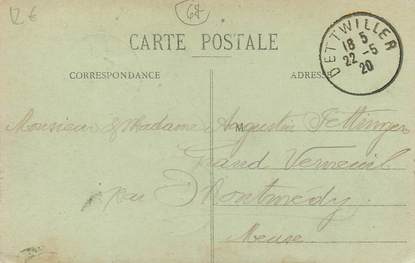 12 €
68
CARTE POSTALE
CORRESPONDANCE
ADRESSE
DETTWILLER
18 5
22 -5
20
Monsieur & Madame Augustin Fettinger
M
Grand Verneuil
par Montmedy
Meuse